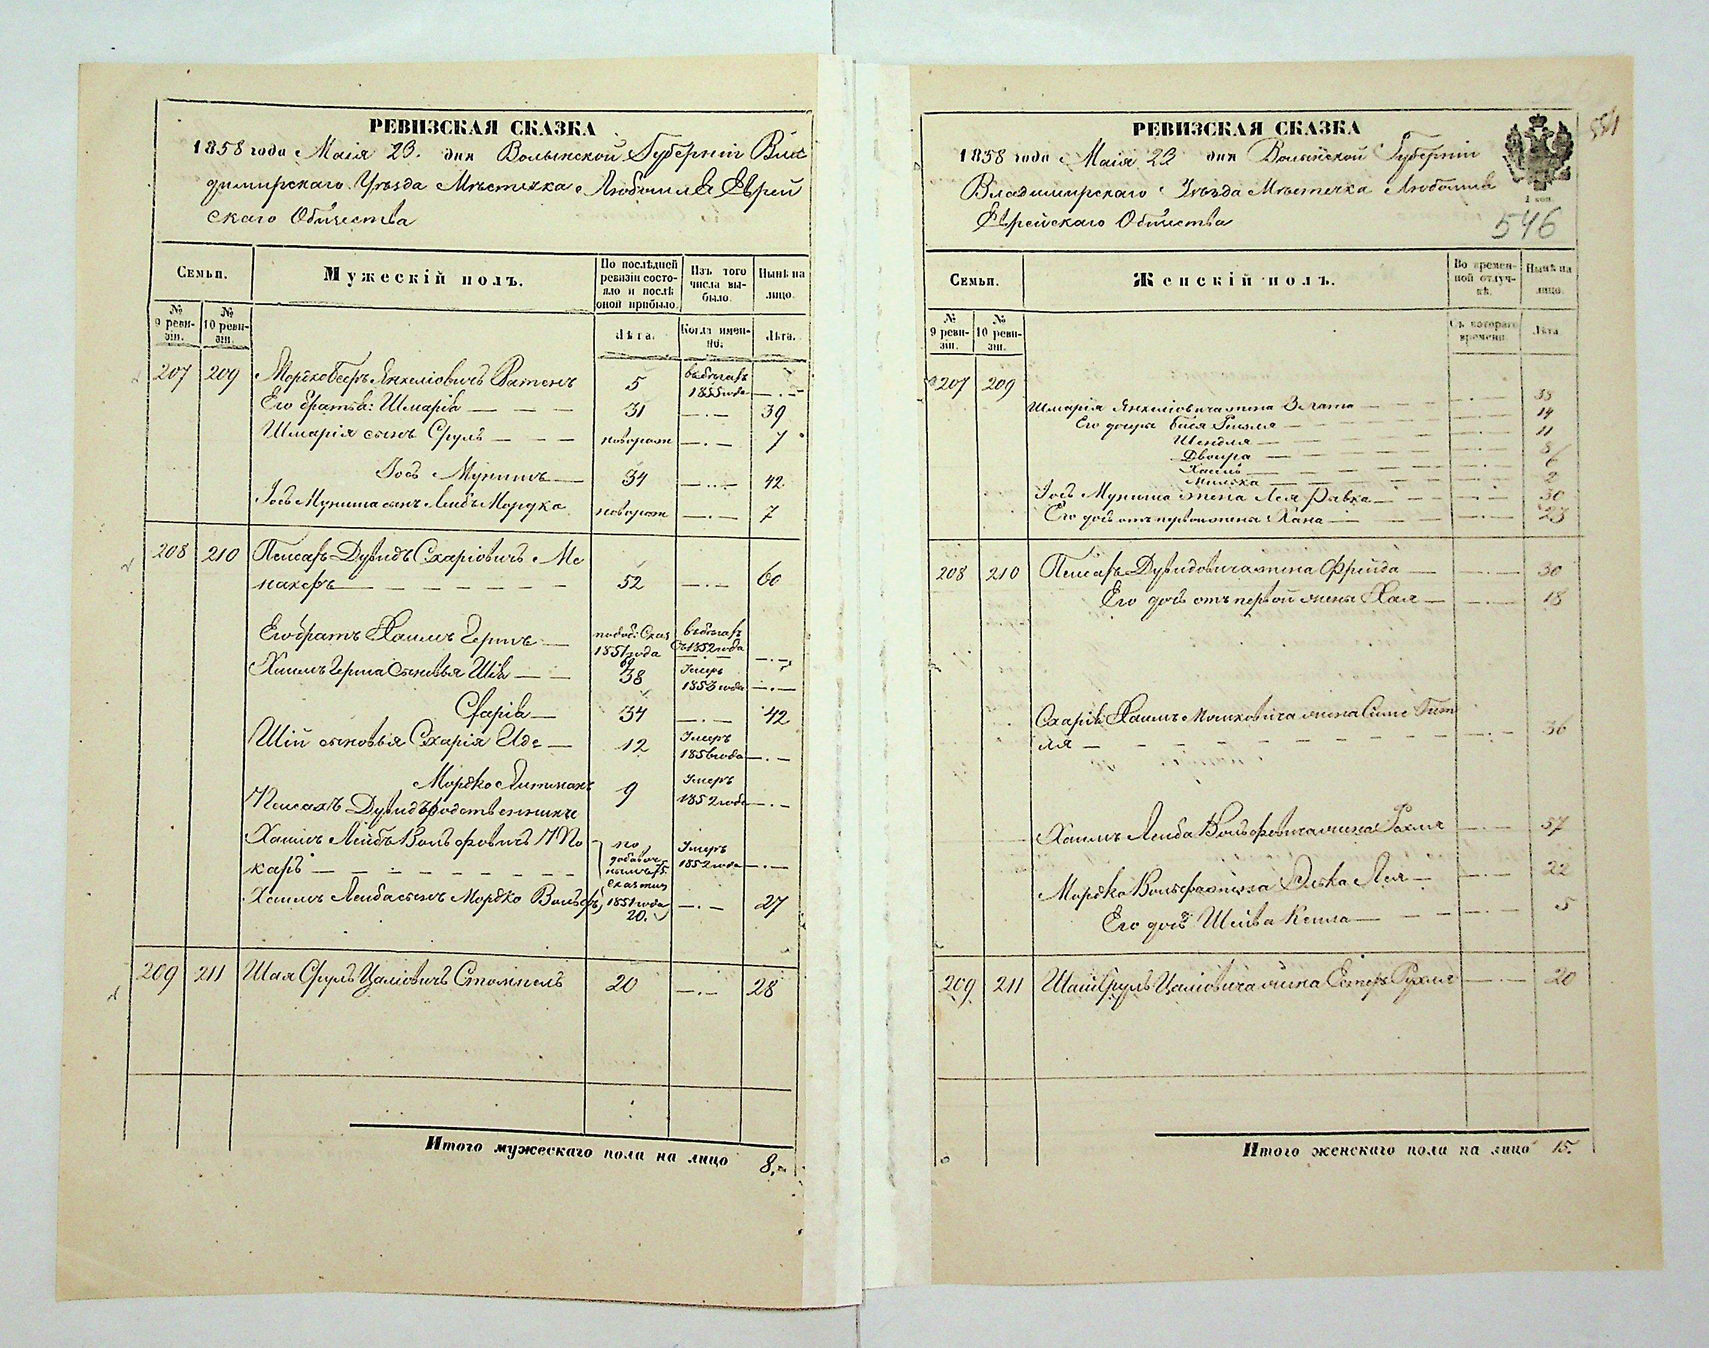 РЕВИЗСКАЯ СКАЗКА
1858 года Маія 23. дня Волынской Губерніи Вла
димирскаго Уѣзда Мѣстечка Любомля Еврей
скаго Общества
Семьи.
Мужескій полъ.
По послѣдней ревизіи состояло и послѣ оной прибыло.
Изъ того числа выбыло.
Нынѣ на лицо.
№ 9 ревизіи.
№ 10 ревизіи.
Лѣта.
Когда именно.
Лѣта.
207 209 Мордко Беръ Янкеліовичъ 5 1855 года —.—
Его братья: Шмарія — — — 31 —.— 39
Шмарія сынъ Сруль — — — новорож —.— 7
Іось Мунишъ — 34 —.— 42
Іось Муниша сынъ Лейбъ Мордка новорож —.— 7
208 210 Пейсахъ Дувидъ Схаріовичъ Ме
накеръ — — — — — 52 —.— 60
Его братъ Хаимъ Герша — 1851 года 1852 года —.—
Хаимъ Герша сыновья Шія — — 38 Умеръ 1853 года —.—
Схарія — 34 —.— 42
Шіи сыновья Схарія Иде — 12 Умеръ 1856 года —.—
Мордко 9 Умеръ 1852 года —.—
Пейсахъ Дувидъ родственники
Хаимъ Лейбъ Вольфовичъ
каръ — — — — — — по Умеръ 1852 года —.—
Хаимъ Лейба сынъ Мордко Вольфъ 1851 года 20. —.— 27
209 211 Шая Сруль 20 —.— 28
Итого мужескаго пола на лицо 8.
РЕВИЗСКАЯ СКАЗКА
1858 года Маія 23 дня Волынской Губерніи
Владимирскаго Уѣзда Мѣстечка Любомля
Еврейскаго Общества
1 коп.
546
Семьи.
Женскій полъ.
Во временной отлучкѣ.
Нынѣ на лицо.
№ 9 ревизіи.
№ 10 ревизіи.
Съ котораго времени.
Лѣта.
207 209
Шмарія Янкеліовича жена Злата — — —.—
Его дочери Рызля — — — —.— 14
Шендля — — — —.— 11
Двойра — — — —.— 8
— — — —.— 6
— — — —.— 2
Іось Муниша жена Лея Ривка — —.— 30
Его дочь отъ первой жены Хана — —.— 23
208 210 Пейсахъ Дувидовича жена Фрейда — —.— 30
Его дочь отъ первой жены Хая — —.— 18
Схарія Хаимъ жена Гит
ля — — — — — — — —.— 36
Хаимъ Лейба Вольфовича жена Рахля —.— 57
Мордко Вольфа жена Лея — —.— 22
Его дочь Шейва Кейла — — —.— 5
209 211 Шаи Сруль жена Естеръ Рухля —.— 20
Итого женскаго пола на лицо 15.